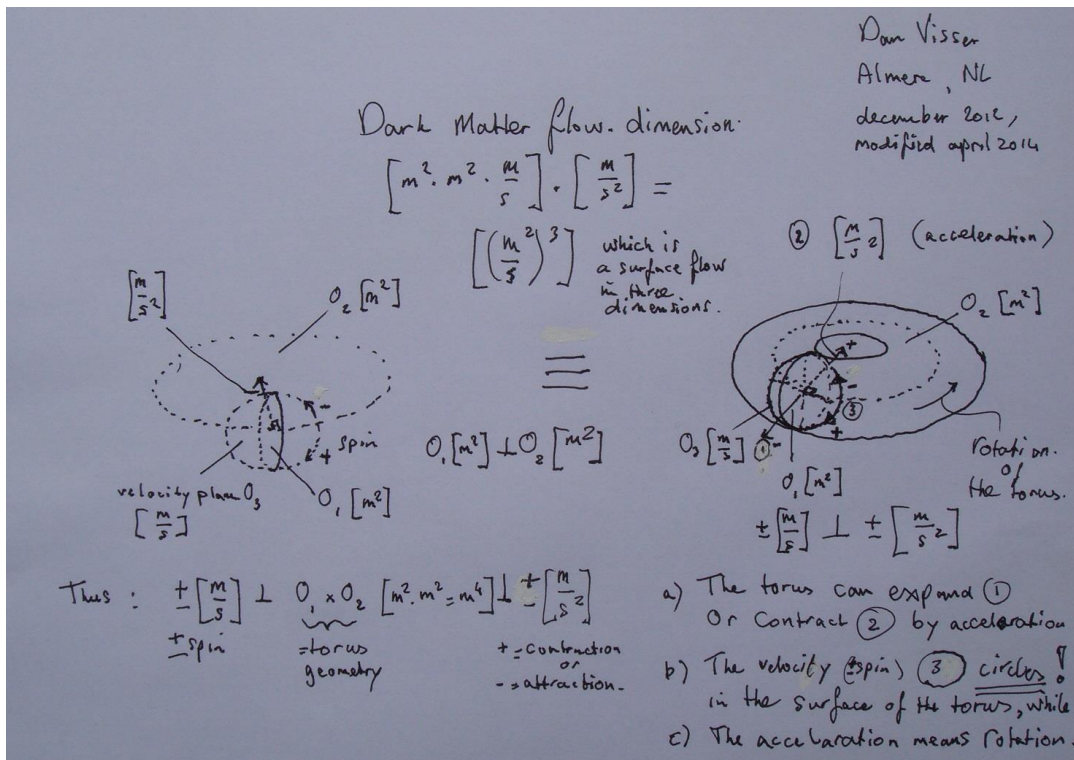 Dan Visser
Almere, NL
december 2012,
modified april 2014
Dark Matter flow-dimension.
[m². m². m/s] . [m/s²] =
[(m²/s)³]
which is
a surface flow
in three
dimensions.
② [m/s²] (acceleration)
[m/s²]
O₂ [m²]
O₂ [m²]
+
-
③
+
-
+
spin
≡
O₁[m²] ⊥ O₂ [m²]
O₃ [m/s] ① -
O₁ [m²]
rotation.
of
the torus.
velocity plane O₃
[m/s]
O₁ [m²]
± [m/s] ⊥ ± [m/s²]
Thus : ± [m/s] ⊥ O₁ x O₂ [m². m² = m⁴] ⊥ ± [m/s²]
± spin
= torus
geometry
+ = contraction
or
- = attraction.
a) The torus can expand ①
Or contract ② by acceleration
b) The velocity (±spin) ③ circles!
in the surface of the torus, while
c) The accelaration means rotation.